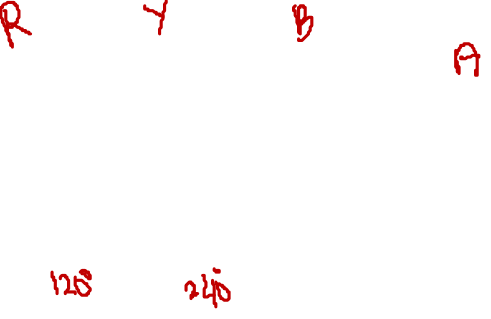 R Y B
A
120° 240°